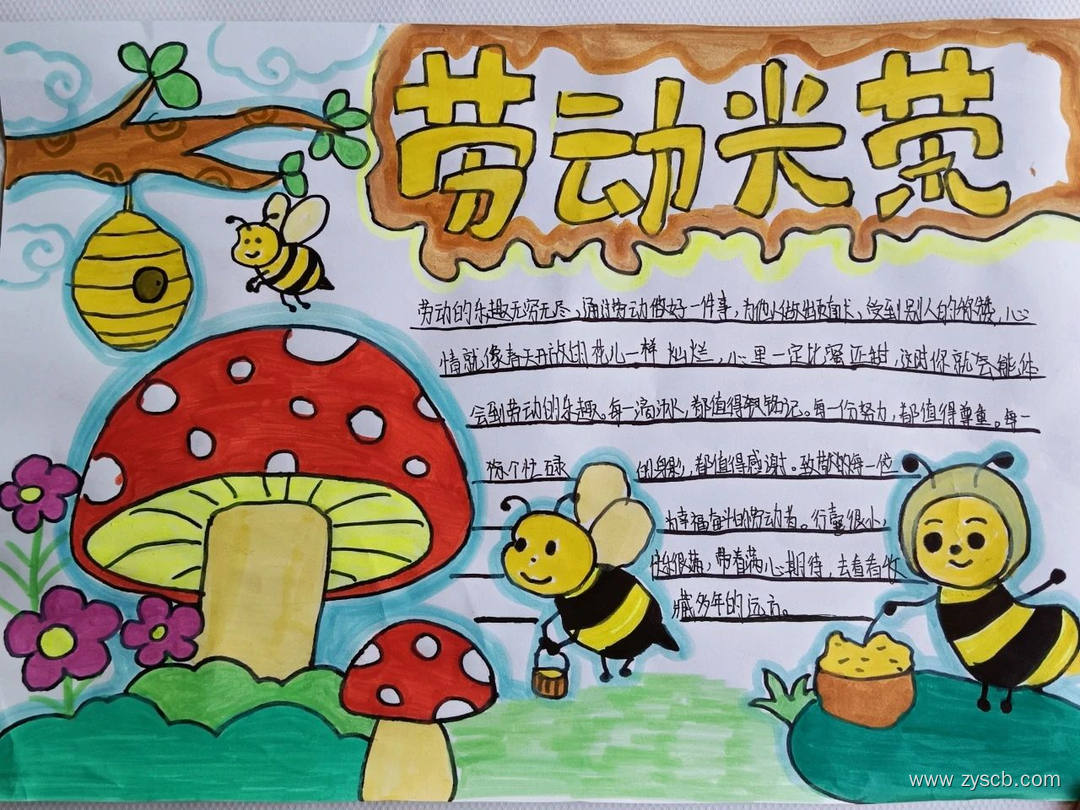 劳动光荣
劳动的乐趣无穷无尽，通过劳动做好一件事，为他人做出贡献，受到别人的称赞，心
情就像春天开放的花儿一样灿烂，心里一定比蜜还甜，这时你就会能体
会到劳动的乐趣。每一滴汗水，都值得被铭记。每一份努力，都值得尊重。每一
个忙碌的身影，都值得感谢。致敬的每一位
为幸福奋斗的劳动者。行囊很小，
快乐很满，带着满心期待，去看看收
藏多年的远方。
www.zyscb.com